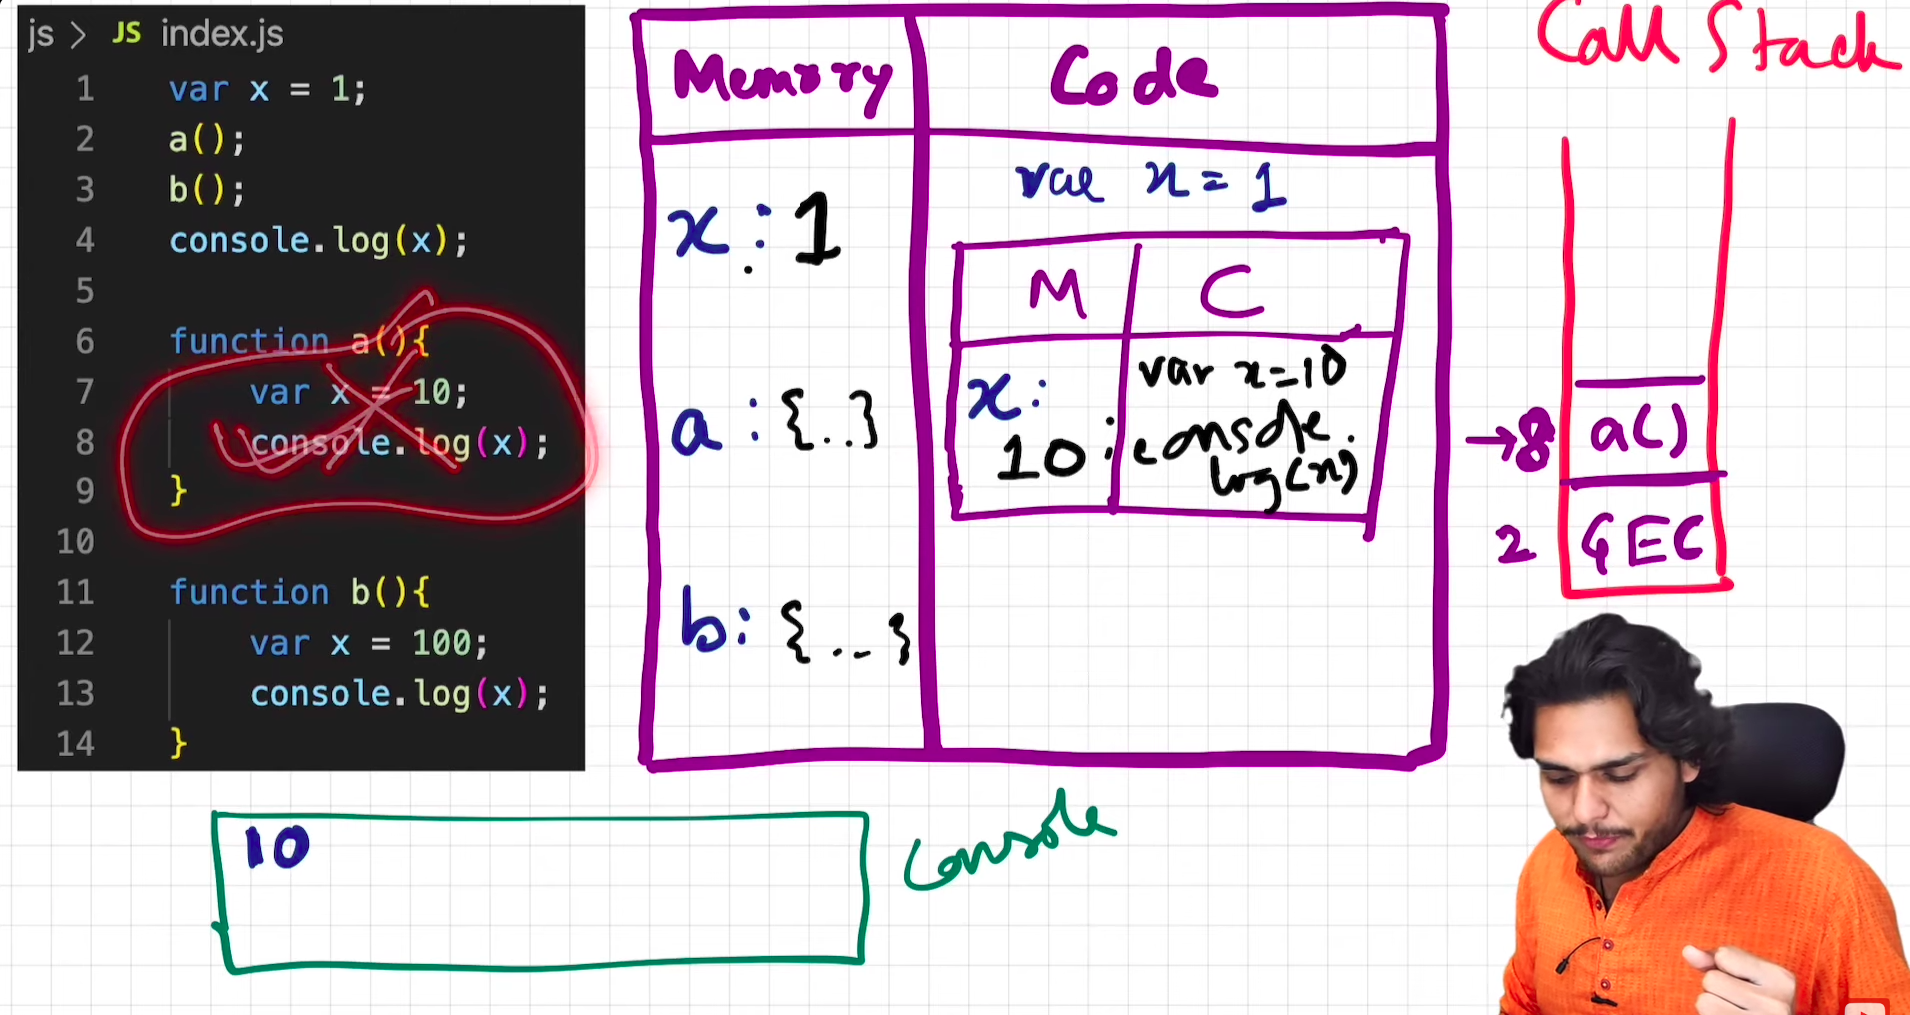 js > JS index.js
1 var x = 1;
2 a();
3 b();
4 console.log(x);
5
6 function a(){
7 var x = 10;
8 console.log(x);
9 }
10
11 function b(){
12 var x = 100;
13 console.log(x);
14 }
Memory Code
x : 1
var x = 1
M C
x:
10
var x=10
console.
log(x);
a : {..}
b: {...}
Call Stack
→8 a()
2 GEC
10
Console